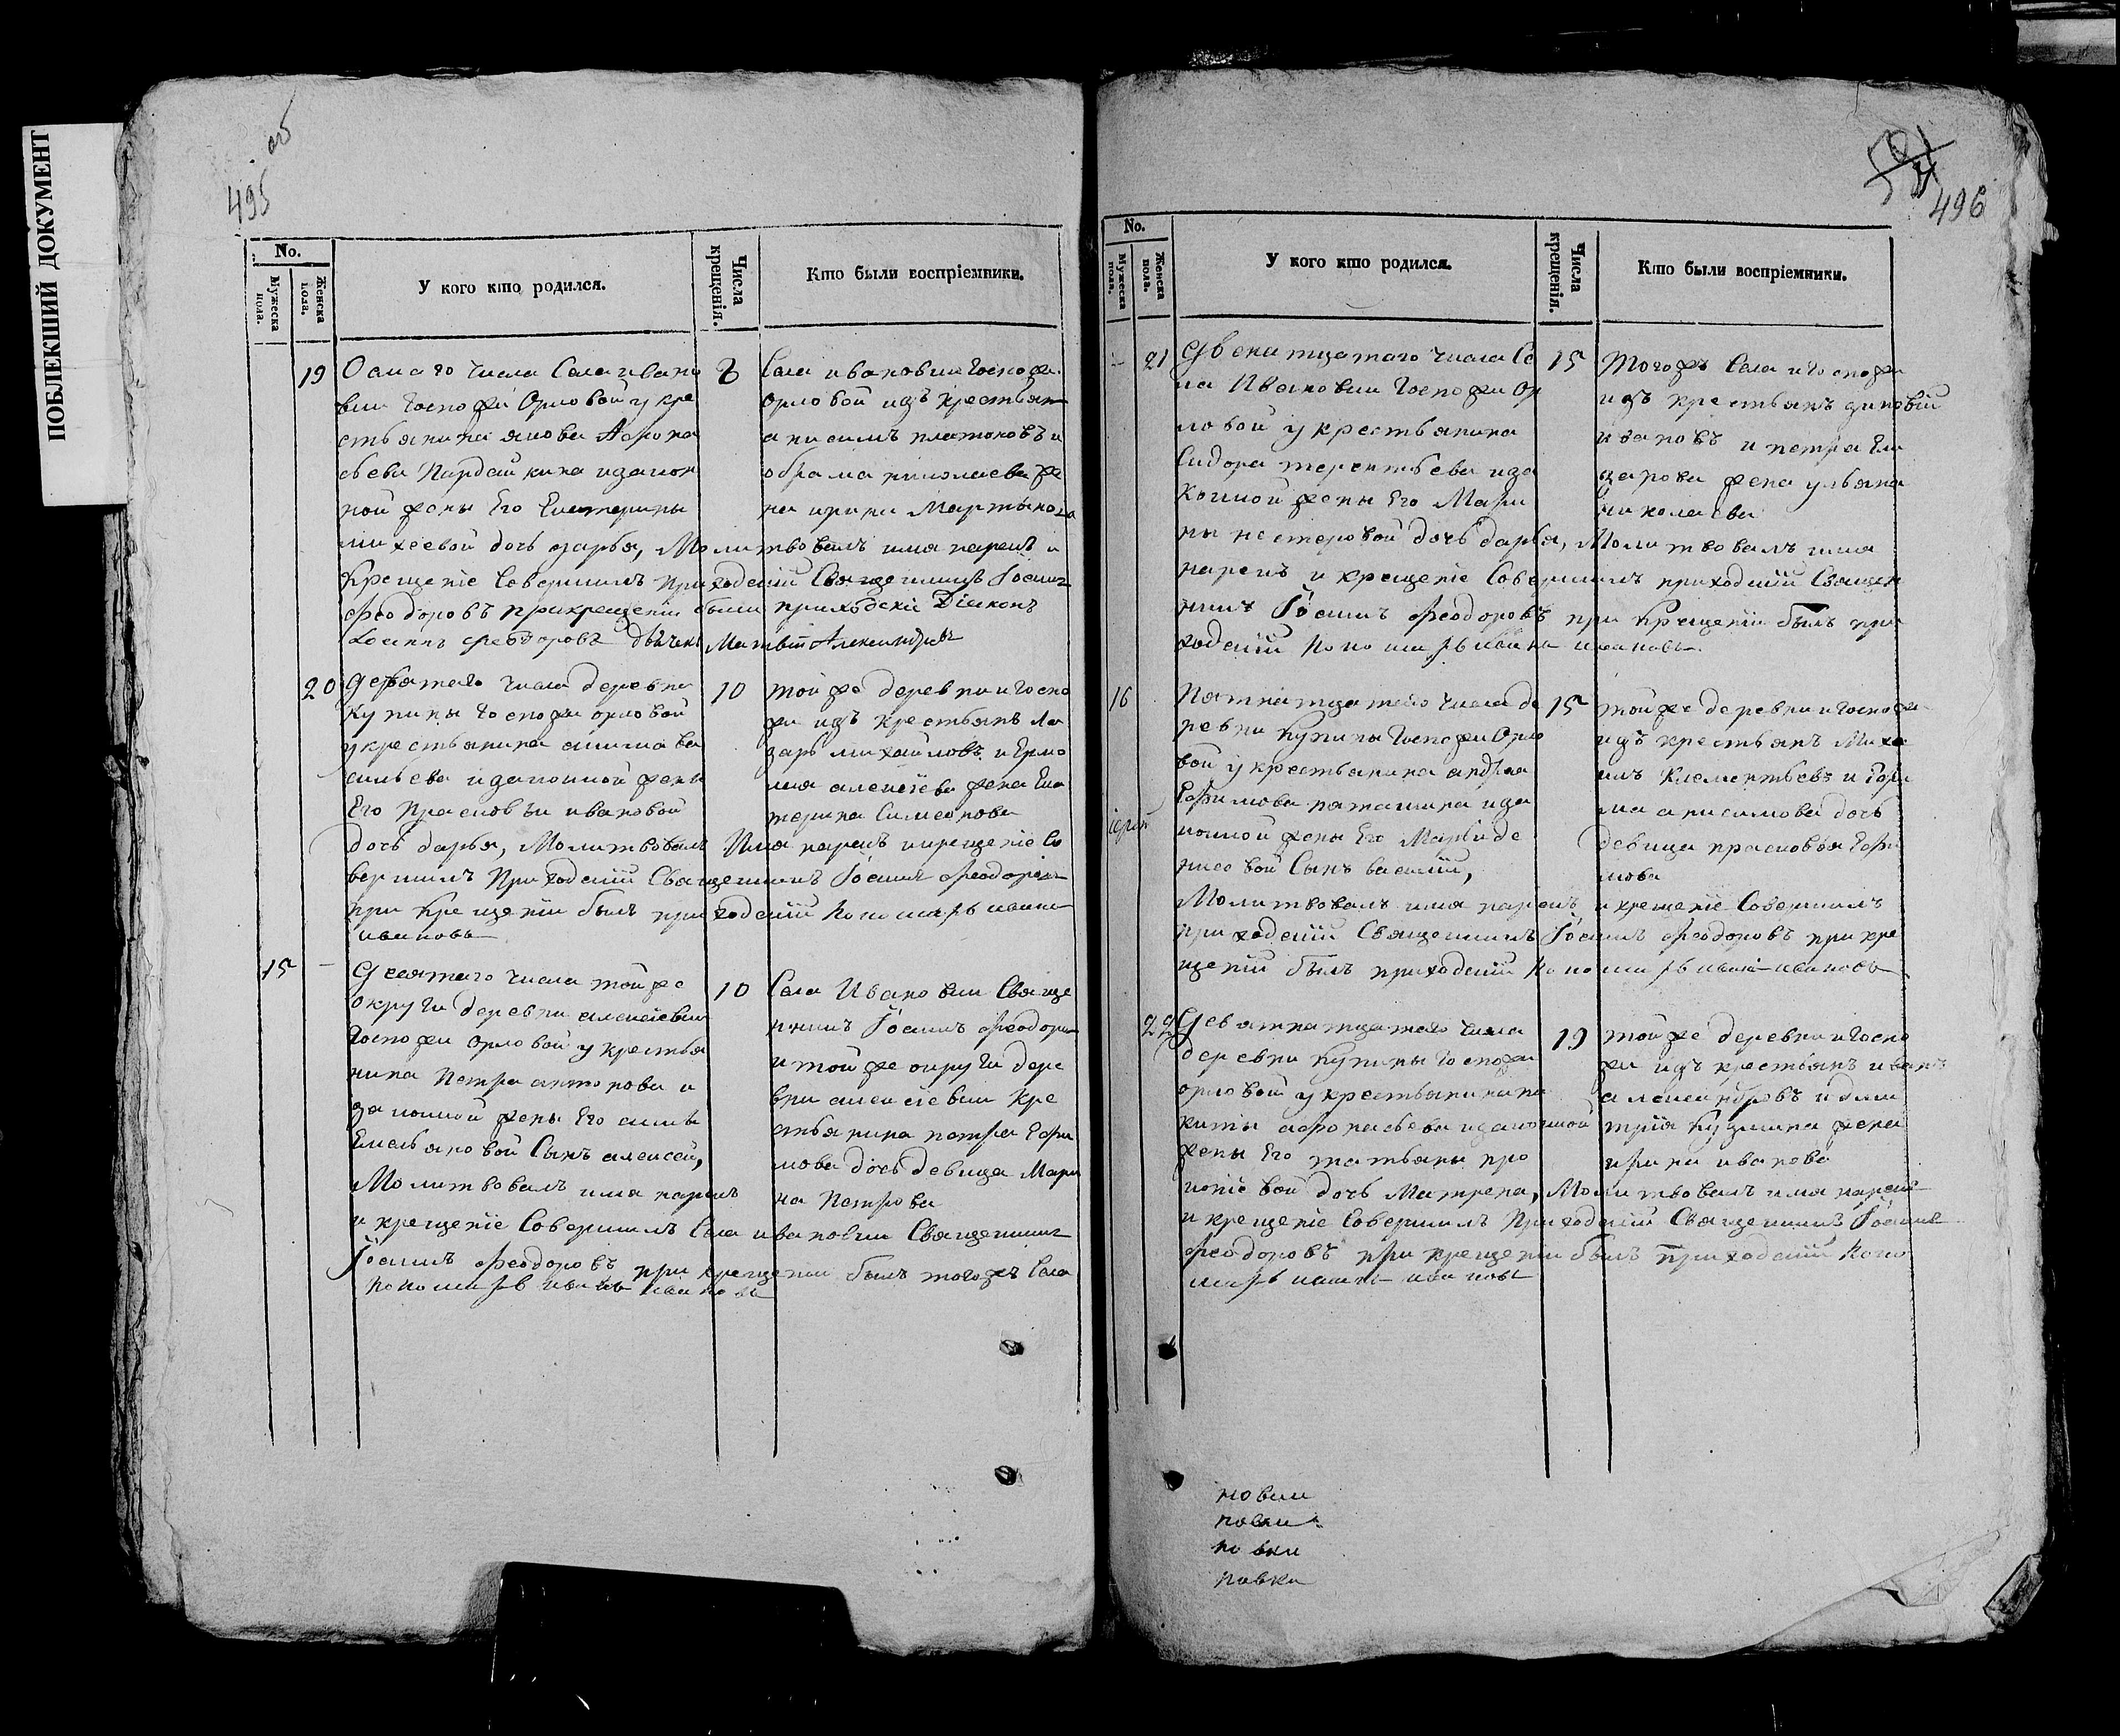 ПОБЛЕКШИЙ ДОКУМЕНТ
495 об
No.
Мужеска пола.
Женска пола.
У кого кто родился.
Числа крещенія.
Кто были воспріемники.
19
Осмаго числа Села ивано
вки Госпожи Орловой у кре
стьянина якова Афона
сьева Пардайкина изакон
ной жены Его Екатерины
михеевой дочь дарья, Молитвовалъ имя нарекъ и
Крещеніе Совершилъ приходскій Священникъ Іоаннъ
Феодоровъ прикрещеніи были приходскіе Діаконъ
Іоаннъ Феодоровъ дьячекъ Матвій Александровъ
8
Села ивановки Госпожи
Орловой изъ крестьянъ
анисимъ платоновъ и
абрама николаева же
на ирина Мартынова
20
Девятаго числа деревни
Купины Госпожи орловой
укрестьянина якима ва
сильева изаконной жены
Его Прасковьи ивановой
дочь дарья, Молитвовалъ Имя нарекъ икрещеніе Со
вершилъ Приходскій Священникъ Іоаннъ Феодоровъ
при Крещеніи былъ приходскій пономарь иванъ
ивановъ
10
той же деревни и Госпо
жи изъ крестьянъ ла
зарь михайловъ и Ермо
лая алексіева жена Ека
терина Симеонова
15
Десятаго числа той же
округи деревни алексіевки
Госпожи Орловой у крестья
нина Петра антонова и
законной жены Его анны
Емельяновой Сынъ алексей,
Молитвовалъ имя нарекъ
и крещеніе Совершилъ Села ивановки Священникъ
Іоаннъ Феодоровъ при крещеніи былъ тогожъ Села
пономарь иванъ ивановъ
10
Села Ивановки Свяще
нникъ Іоаннъ Феодоровъ
и той же округи дере
вни алексіевки Кре
стьянина петра Ефи
мова дочь девица Мари
на Петрова
496
No.
Мужеска пола.
Женска пола.
У кого кто родился.
Числа крещенія.
Кто были воспріемники.
21
Двенатцатаго числа Се
ла Ивановки Госпожи Ор
ловой у крестьянина
Сидора терентьева иза
конной жены Его Мари
ны нестеровой дочь дарья, Молитвовалъ имя
нарекъ и крещеніе Совершилъ приходскій Священ
никъ Іоаннъ Феодоровъ при Крещеніи былъ при
ходскій пономарь иванъ ивановъ
15
Тогожъ Села и Госпожи
изъ крестьянъ зиновій
ивановъ и петра Ели
зарова жена ульяна
николаева
16
Пятнатцатаго числа де
ревни Купины Госпожи Орло
вой у крестьянина андрея
Ефимова изаконной жены Его Марьи де
нисовой Сынъ василій,
Молитвовалъ имя нарекъ и крещеніе Совершилъ
приходскій Священникъ Іоаннъ Феодоровъ при кре
щеніи былъ приходскій пономарь иванъ ивановъ
15
той же деревни и Госпожи
изъ крестьянъ Миха
илъ Клементьевъ и Ефи
ма анисимова дочь
девица прасковья Ефи
мова
22
Девятнатцатаго числа
деревни Купины Госпожи
орловой укрестьянина ни
киты афонасьева изаконной
жены Его татьяны про
копіевой дочь Матрена, Молитвовалъ имя нарекъ
и крещеніе Совершилъ Приходскій Священникъ Іоаннъ
Феодоровъ при крещеніи былъ приходскій поно
марь иванъ ивановъ
19
той же деревни и Госпо
жи изъ крестьянъ иванъ
александровъ и дми
трія Кузмина жена
ирина иванова
новки
новки
новки
новки